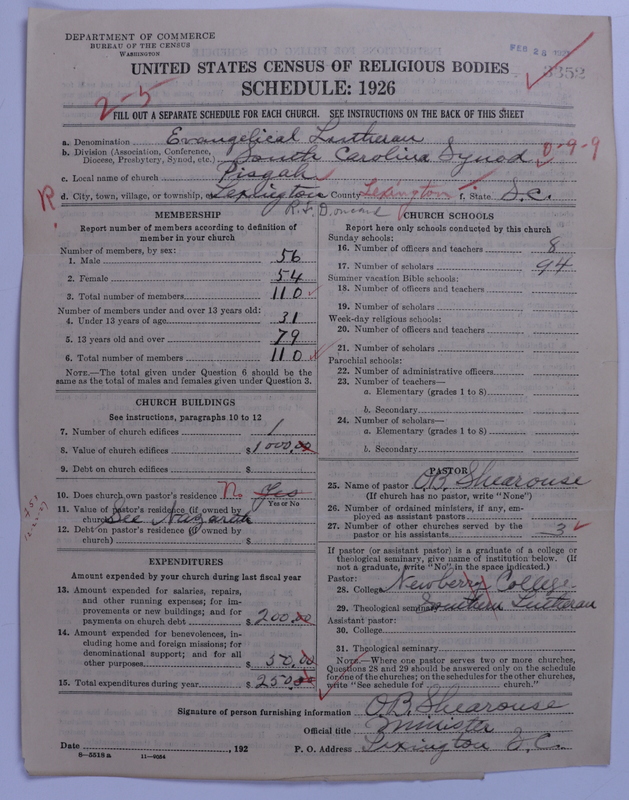 DEPARTMENT OF COMMERCE
BUREAU OF THE CENSUS
WASHINGTON
FEB 28
3352
UNITED STATES CENSUS OF RELIGIOUS BODIES
SCHEDULE: 1926
2-5
FILL OUT A SEPARATE SCHEDULE FOR EACH CHURCH. SEE INSTRUCTIONS ON THE BACK OF THIS SHEET
a. Denomination Evangelical Lutheran
b. Division (Association, Conference, Diocese, Presbytery, Synod, etc.) South Carolina Synod 0-9-9
c. Local name of church Pisgah
R
d. City, town, village, or township, Lexington County Lexington f. State S.C.
R.F.D.
MEMBERSHIP
Report number of members according to definition of
member in your church
Number of members, by sex:
1. Male 56
2. Female 54
3. Total number of members 110
Number of members under and over 13 years old:
4. Under 13 years of age 31
5. 13 years old and over 79
6. Total number of members 110
NOTE.—The total given under Question 6 should be the
same as the total of males and females given under Question 3.
CHURCH BUILDINGS
See instructions, paragraphs 10 to 12
7. Number of church edifices 1
8. Value of church edifices $ 1000.00
9. Debt on church edifices $
10. Does church own pastor's residence No Yes
Yes or No
11. Value of pastor's residence (if owned by
church) See Nazareth
12. Debt on pastor's residence (if owned by
church) $
EXPENDITURES
Amount expended by your church during last fiscal year
13. Amount expended for salaries, repairs,
and other running expenses; for im-
provements or new buildings; and for
payments on church debt $ 200.00
14. Amount expended for benevolences, in-
cluding home and foreign missions; for
denominational support; and for all
other purposes $ 50.00
15. Total expenditures during year $ 250.00
CHURCH SCHOOLS
Report here only schools conducted by this church
Sunday schools:
16. Number of officers and teachers 8
17. Number of scholars 94
Summer vacation Bible schools:
18. Number of officers and teachers
19. Number of scholars
Week-day religious schools:
20. Number of officers and teachers
21. Number of scholars
Parochial schools:
22. Number of administrative officers
23. Number of teachers—
a. Elementary (grades 1 to 8)
b. Secondary
24. Number of scholars—
a. Elementary (grades 1 to 8)
b. Secondary
PASTOR
25. Name of pastor O.B. Shearouse
(If church has no pastor, write "None")
26. Number of ordained ministers, if any, em-
ployed as assistant pastors
27. Number of other churches served by the
pastor or his assistants 3
If pastor (or assistant pastor) is a graduate of a college or
theological seminary, give name of institution below. (If
not a graduate, write "No" in the space indicated.)
Pastor:
28. College Newberry College
29. Theological seminary Southern Lutheran
Assistant pastor:
30. College
31. Theological seminary
NOTE.—Where one pastor serves two or more churches,
Questions 28 and 29 should be answered only on the schedule
for one of the churches; on the schedules for the other churches,
write "See schedule for church."
Signature of person furnishing information O.B. Shearouse
Official title Minister
Date , 192 P. O. Address Lexington S.C.
8—5518 a 11—9054